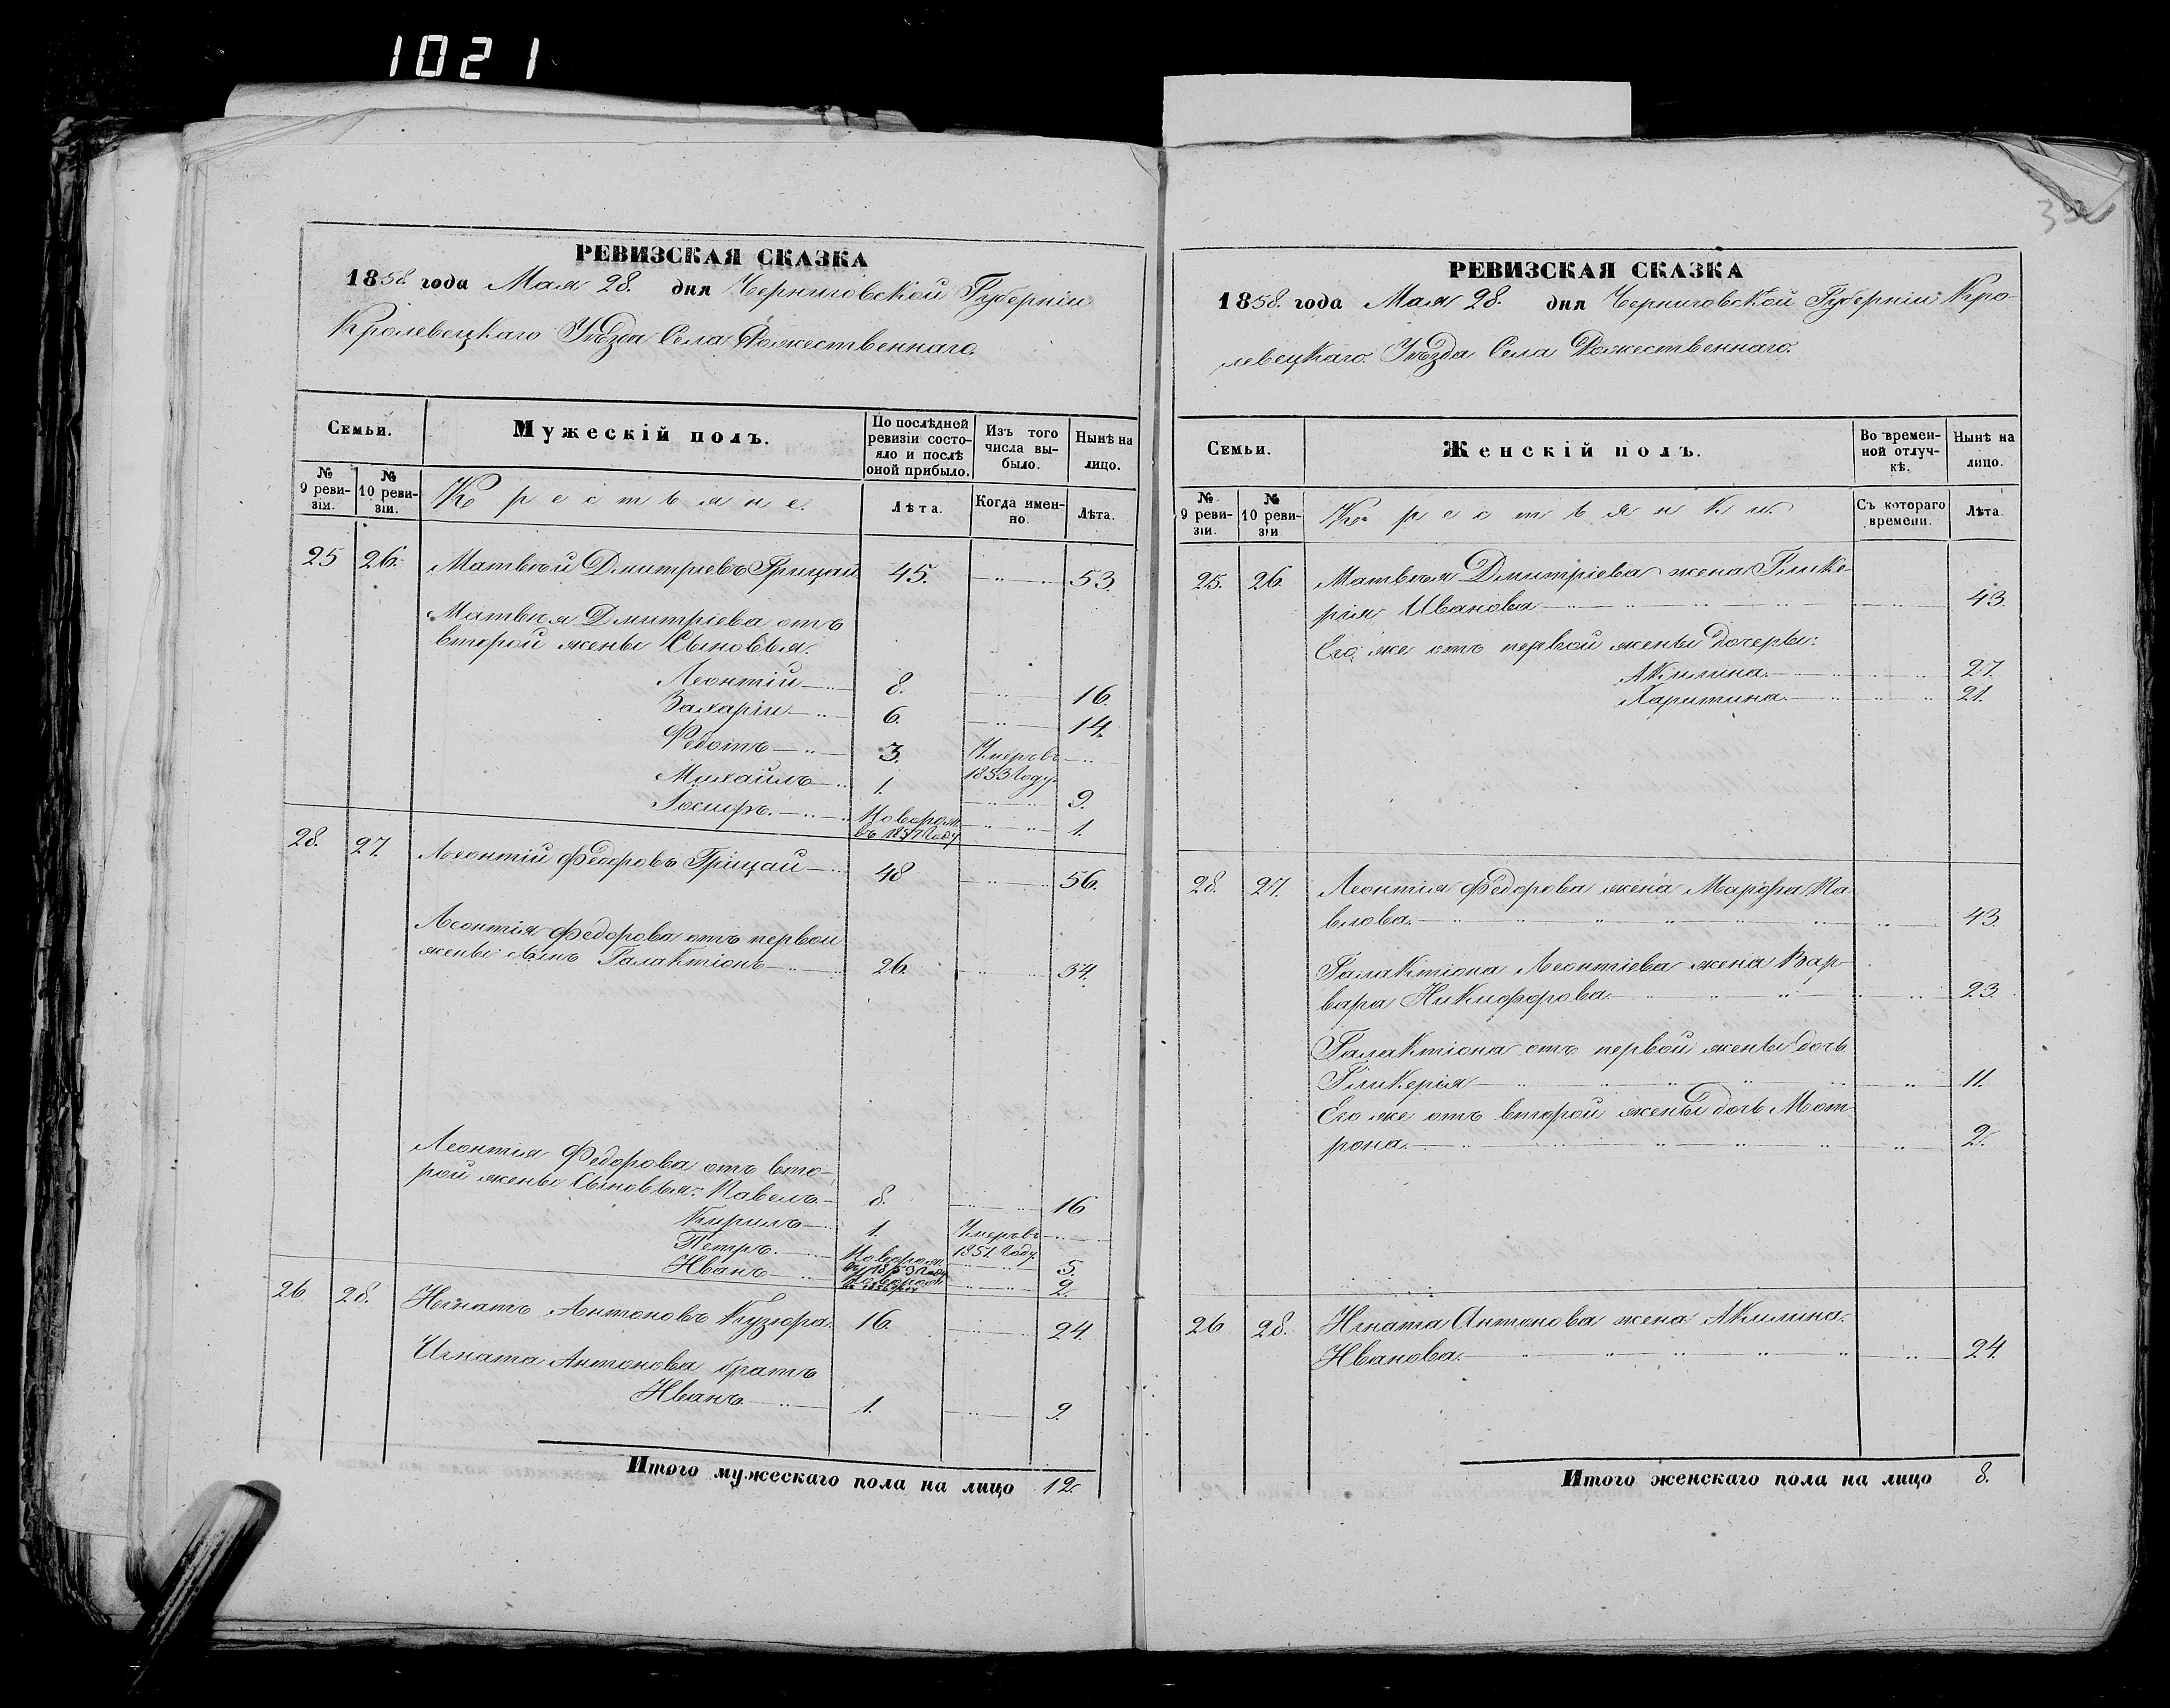 1021
РЕВИЗСКАЯ СКАЗКА
1858 года Мая 28. дня Черниговской Губерніи
Кролевецкаго Уѣзда Села Рожественнаго.
Семьи.
Мужескій полъ.
По послѣдней ревизіи состояло и послѣ оной прибыло.
Изъ того числа выбыло.
Нынѣ на лицо.
№ 9 ревизіи.
№ 10 ревизіи.
Крестьяне.
Лѣта.
Когда именно.
Лѣта.
25 26. Матвѣй Дмитріевъ Грицай 45. 53.
Матвѣя Дмитріева отъ
второй жены Сыновья.
Леонтій 8. 16.
Захарій 6. 14.
Федотъ 3. Умеръ въ
1853 Году.
Михаилъ 1. 9.
Іосифъ. Новорож. 1.
въ 1857 Году
28. 27. Леонтій Федоровъ Грицай 48 56.
Леонтія Федорова отъ первой
жены сынъ Галактіонъ 26. 34.
Леонтія Федорова отъ вто-
рой жены Сыновья: Павелъ 8. 16
Кирилъ 1. Умеръ въ
1851. Году.
Петръ. Новорож. 5.
въ 1853 Году
Иванъ Новорож 2.
26. 28. Игнатъ Антоновъ Кузюра. 16. 24.
Игната Антонова братъ
Иванъ 1. 9.
Итого мужескаго пола на лицо 12.
РЕВИЗСКАЯ СКАЗКА
1858. года Мая 28. дня Черниговской Губерніи Кро-
левецкаго Уѣзда Села Рожественнаго.
Семьи.
Женскій полъ.
Во временной отлучкѣ.
Нынѣ на лицо.
№ 9 ревизіи.
№ 10 ревизіи
Крестьянки.
Съ котораго времени.
Лѣта.
25. 26. Матвѣя Дмитріева жена Глике-
рія Иванова 43.
Его же отъ первой жены дочери:
Акилина. 27.
Харитина. 21.
28. 27. Леонтія Федорова жена Марфа Па-
влова. 43.
Галактіона Леонтіева жена Вар-
вара Никифорова. 23.
Галактіона отъ первой жены дочь
Гликерія 11.
Его же отъ второй жены дочь Мот-
рона. 2.
26 28. Игната Антонова жена Акилина
Иванова. 24.
Итого женскаго пола на лицо 8.